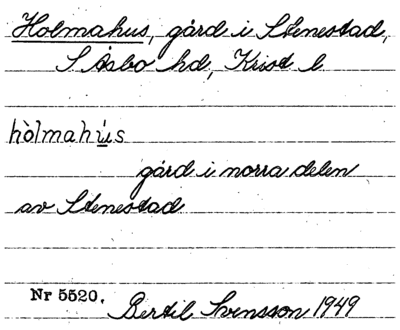 Holmahus, gård i Stenestad,
S Åsbo hd, Krist l
hòlmahùs
gård i norra delen
av Stenestad
Nr 5520. Bertil Svensson 1949